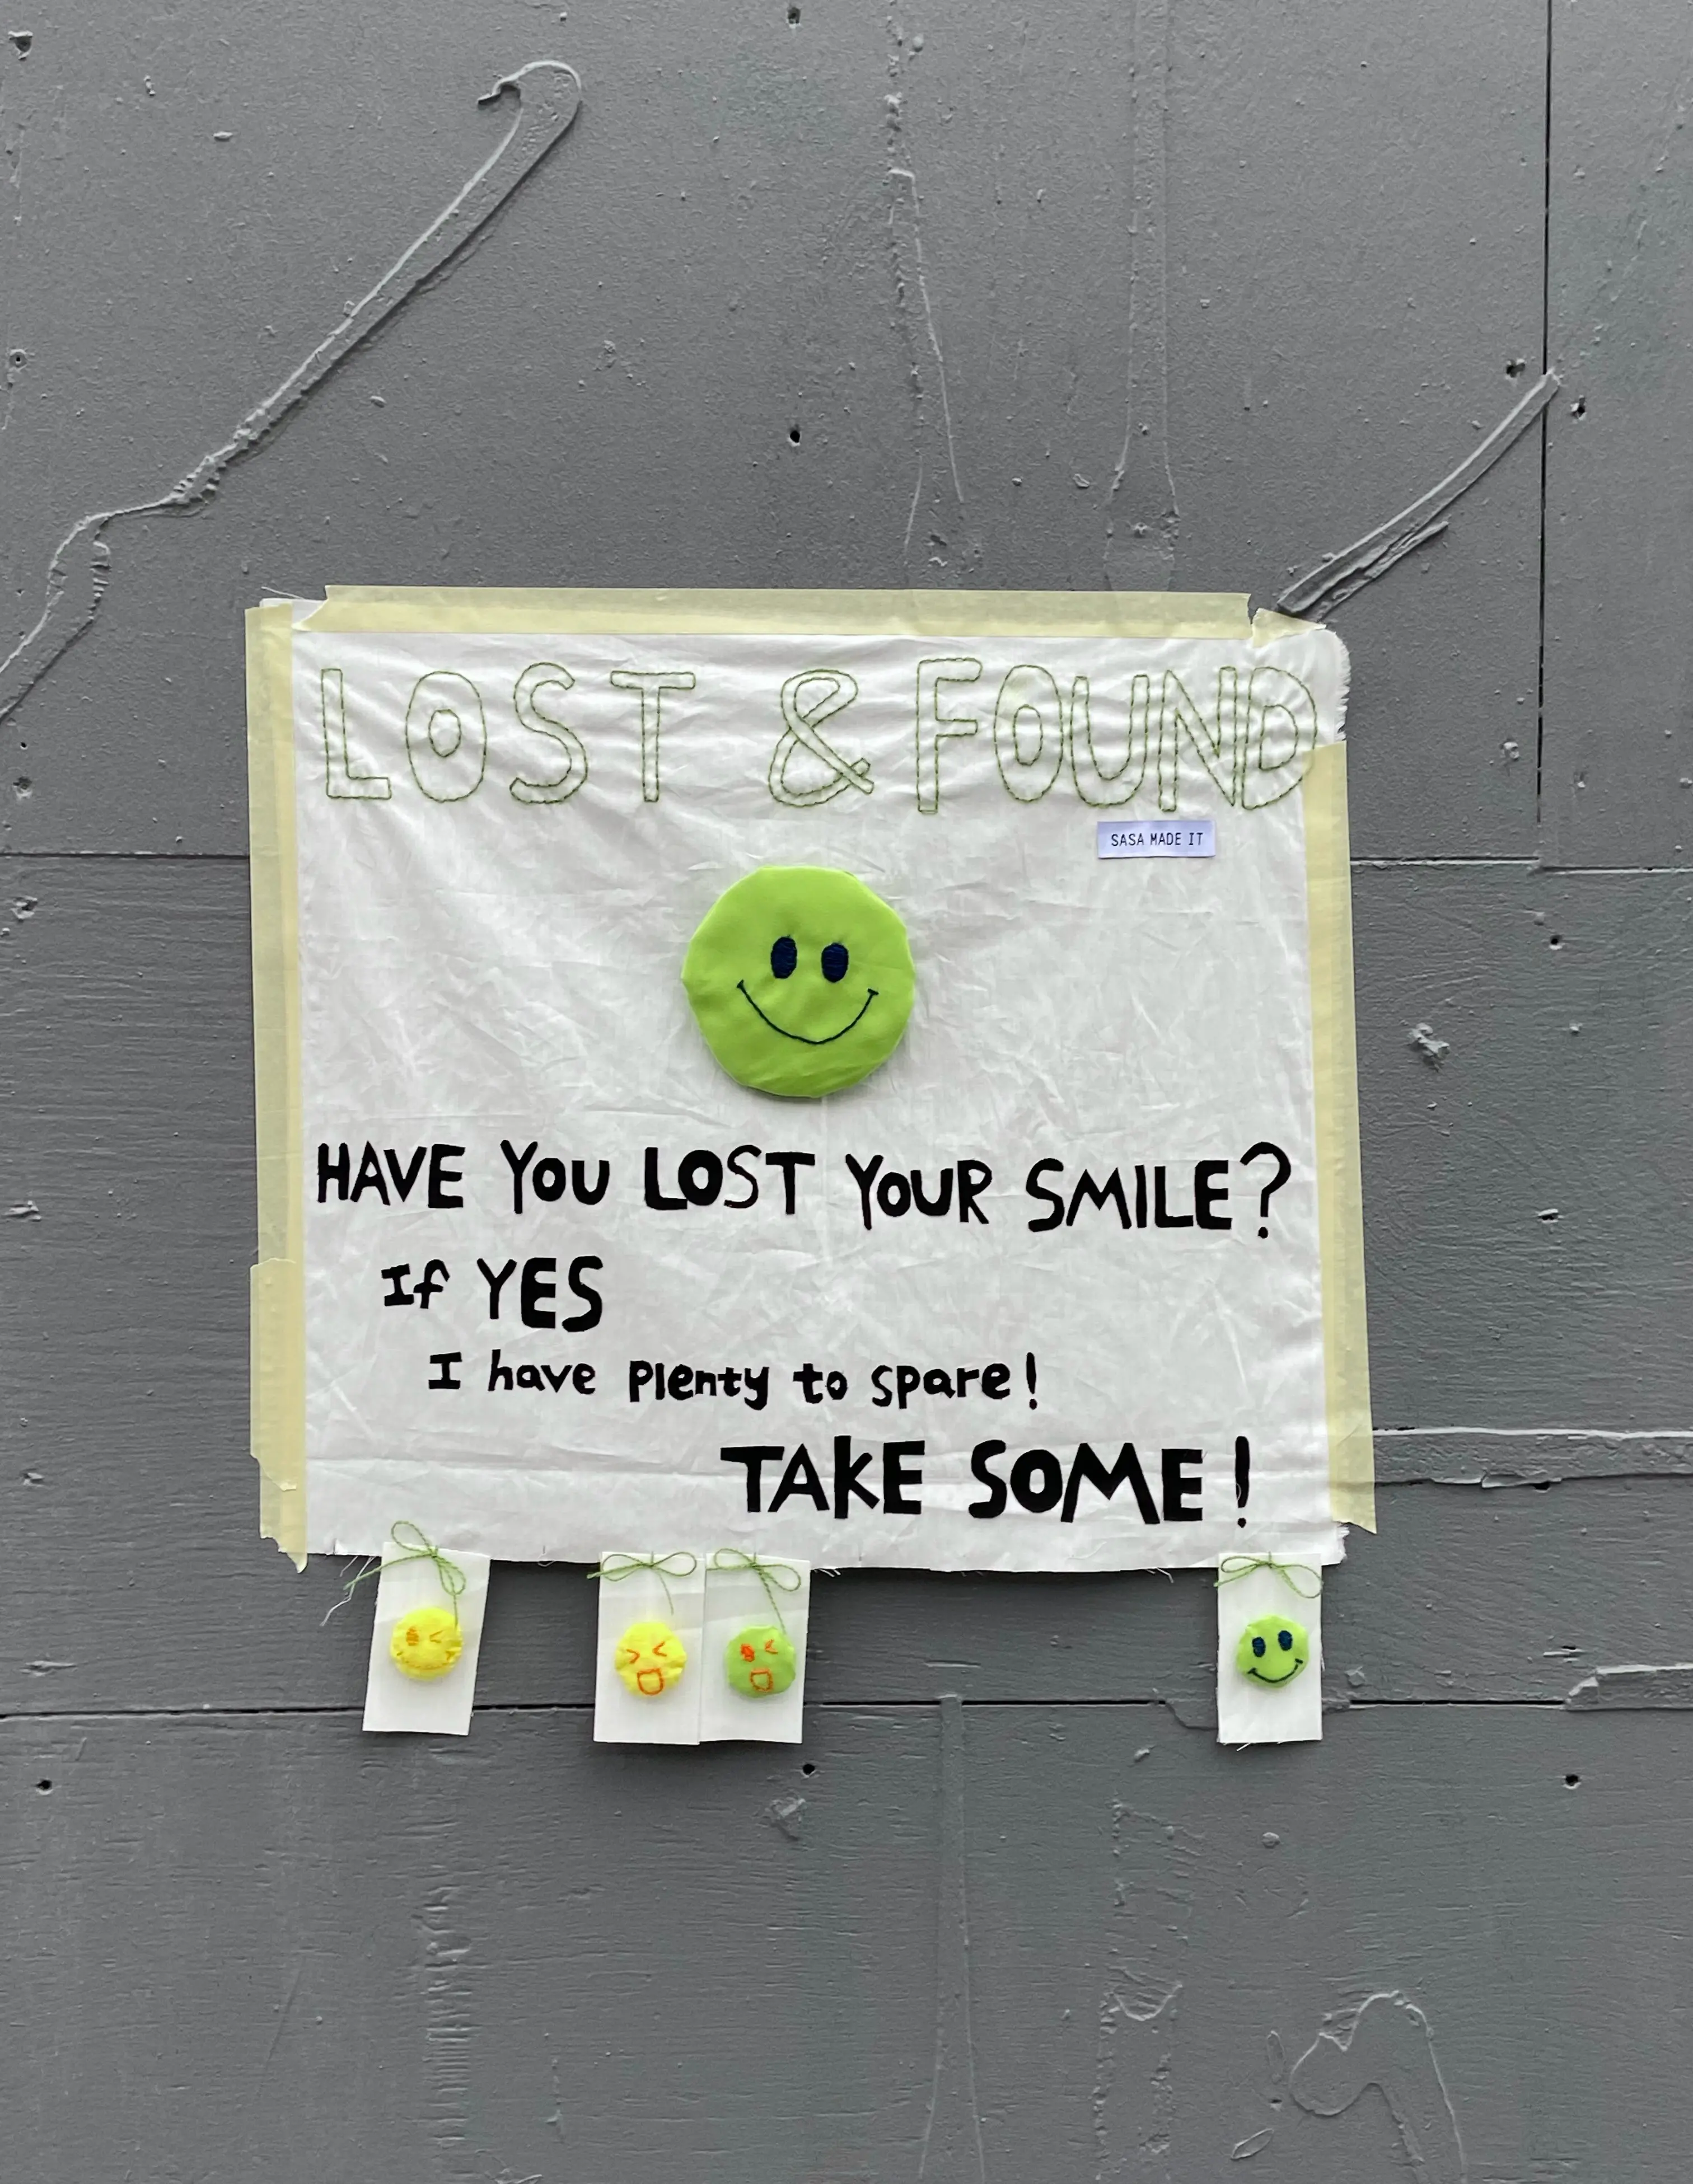 LOST & FOUND
SASA MADE IT
HAVE YOU LOST YOUR SMILE?
If YES
I have plenty to spare!
TAKE SOME!